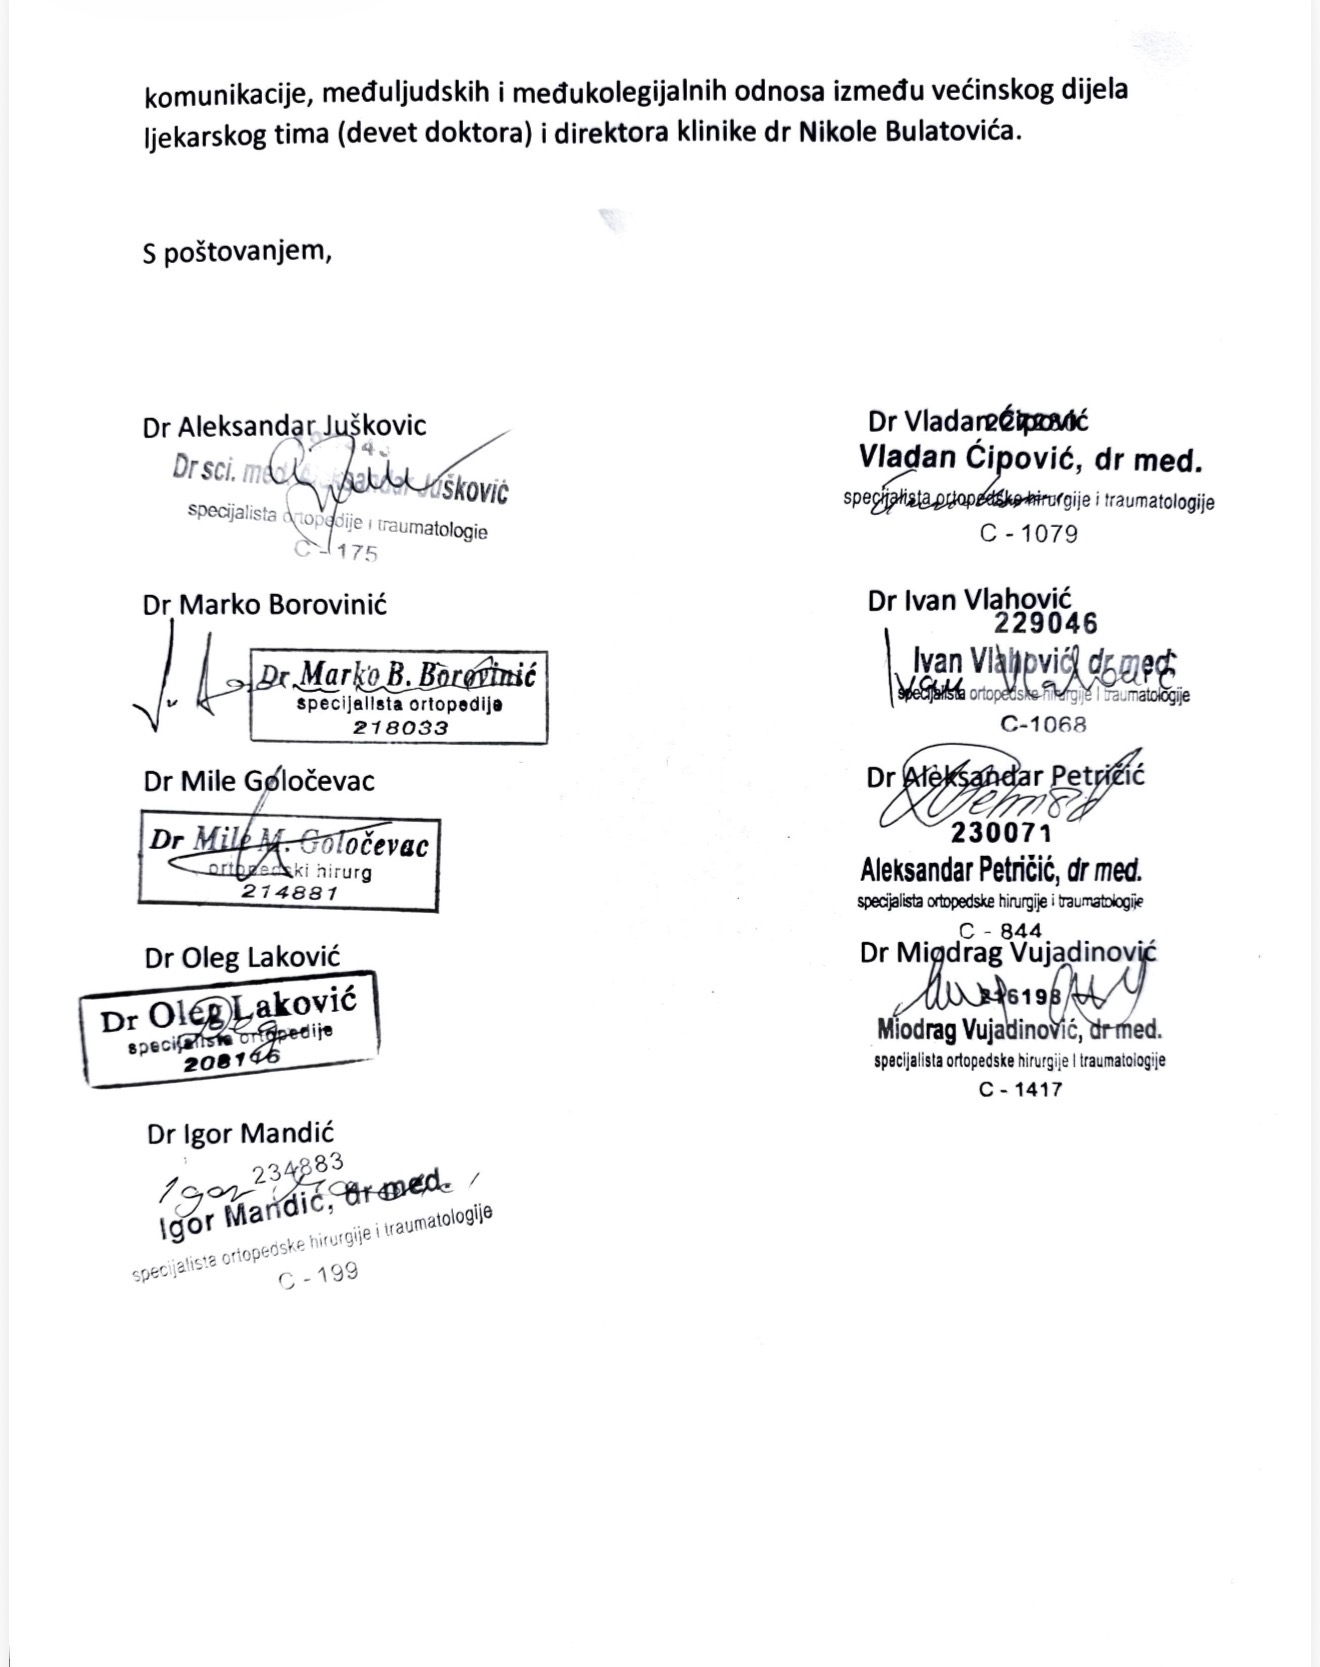 komunikacije, međuljudskih i međukolegijalnih odnosa između većinskog dijela
ljekarskog tima (devet doktora) i direktora klinike dr Nikole Bulatovića.
S poštovanjem,
Dr Aleksandar Juškovic
Dr sci. med. Aleksandar Jušković
specijalista ortopedije i traumatologie
C - 175
Dr Marko Borovinić
Dr Marko B. Borovinić
specijalista ortopedije
218033
Dr Mile Goločevac
Dr Mile M. Goločevac
ortopedski hirurg
214881
Dr Oleg Laković
Dr Oleg Laković
specijalista ortopedije
208146
Dr Igor Mandić
234883
Igor Mandić, dr med.
specijalista ortopedske hirurgije i traumatologije
C - 199
Dr Vladan Ćipović
Vladan Ćipović, dr med.
specijalista ortopedske hirurgije i traumatologije
C - 1079
Dr Ivan Vlahović
229046
Ivan Vlahović, dr med.
Ivan Vlahović
specijalista ortopedske hirurgije I traumatologije
C-1068
Dr Aleksandar Petričić
230071
Aleksandar Petričić, dr med.
specijalista ortopedske hirurgije i traumatologije
C - 844
Dr Miodrag Vujadinović
216198
Miodrag Vujadinović, dr med.
specijalista ortopedske hirurgije I traumatologije
C - 1417